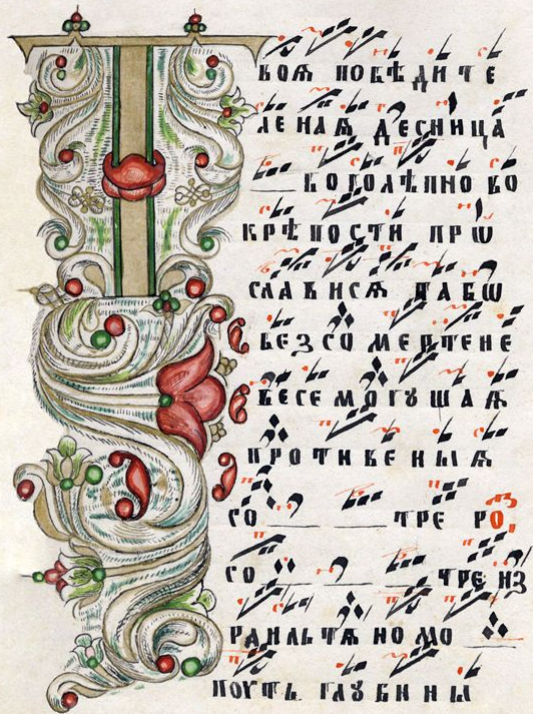 ТВОѦ ПОБѢДИТЕ
ЛЕНАѦ ДЕСНИЦА
БОГОЛѢПНО ВО
КРѢПОСТИ ПРѠ
СЛАВИСѦ ТАБѠ
БЕЗСО МЕРТЕНЕ
ВЕСЕ МОГꙊ ШАѦ
ПРОТИВЕ НЫѦ
СО ТРЕ
СО ТРЕ ИЗ
РАИЛЬТѦ НО МО
ПОУТЬ ГЛꙊБИ НЫ